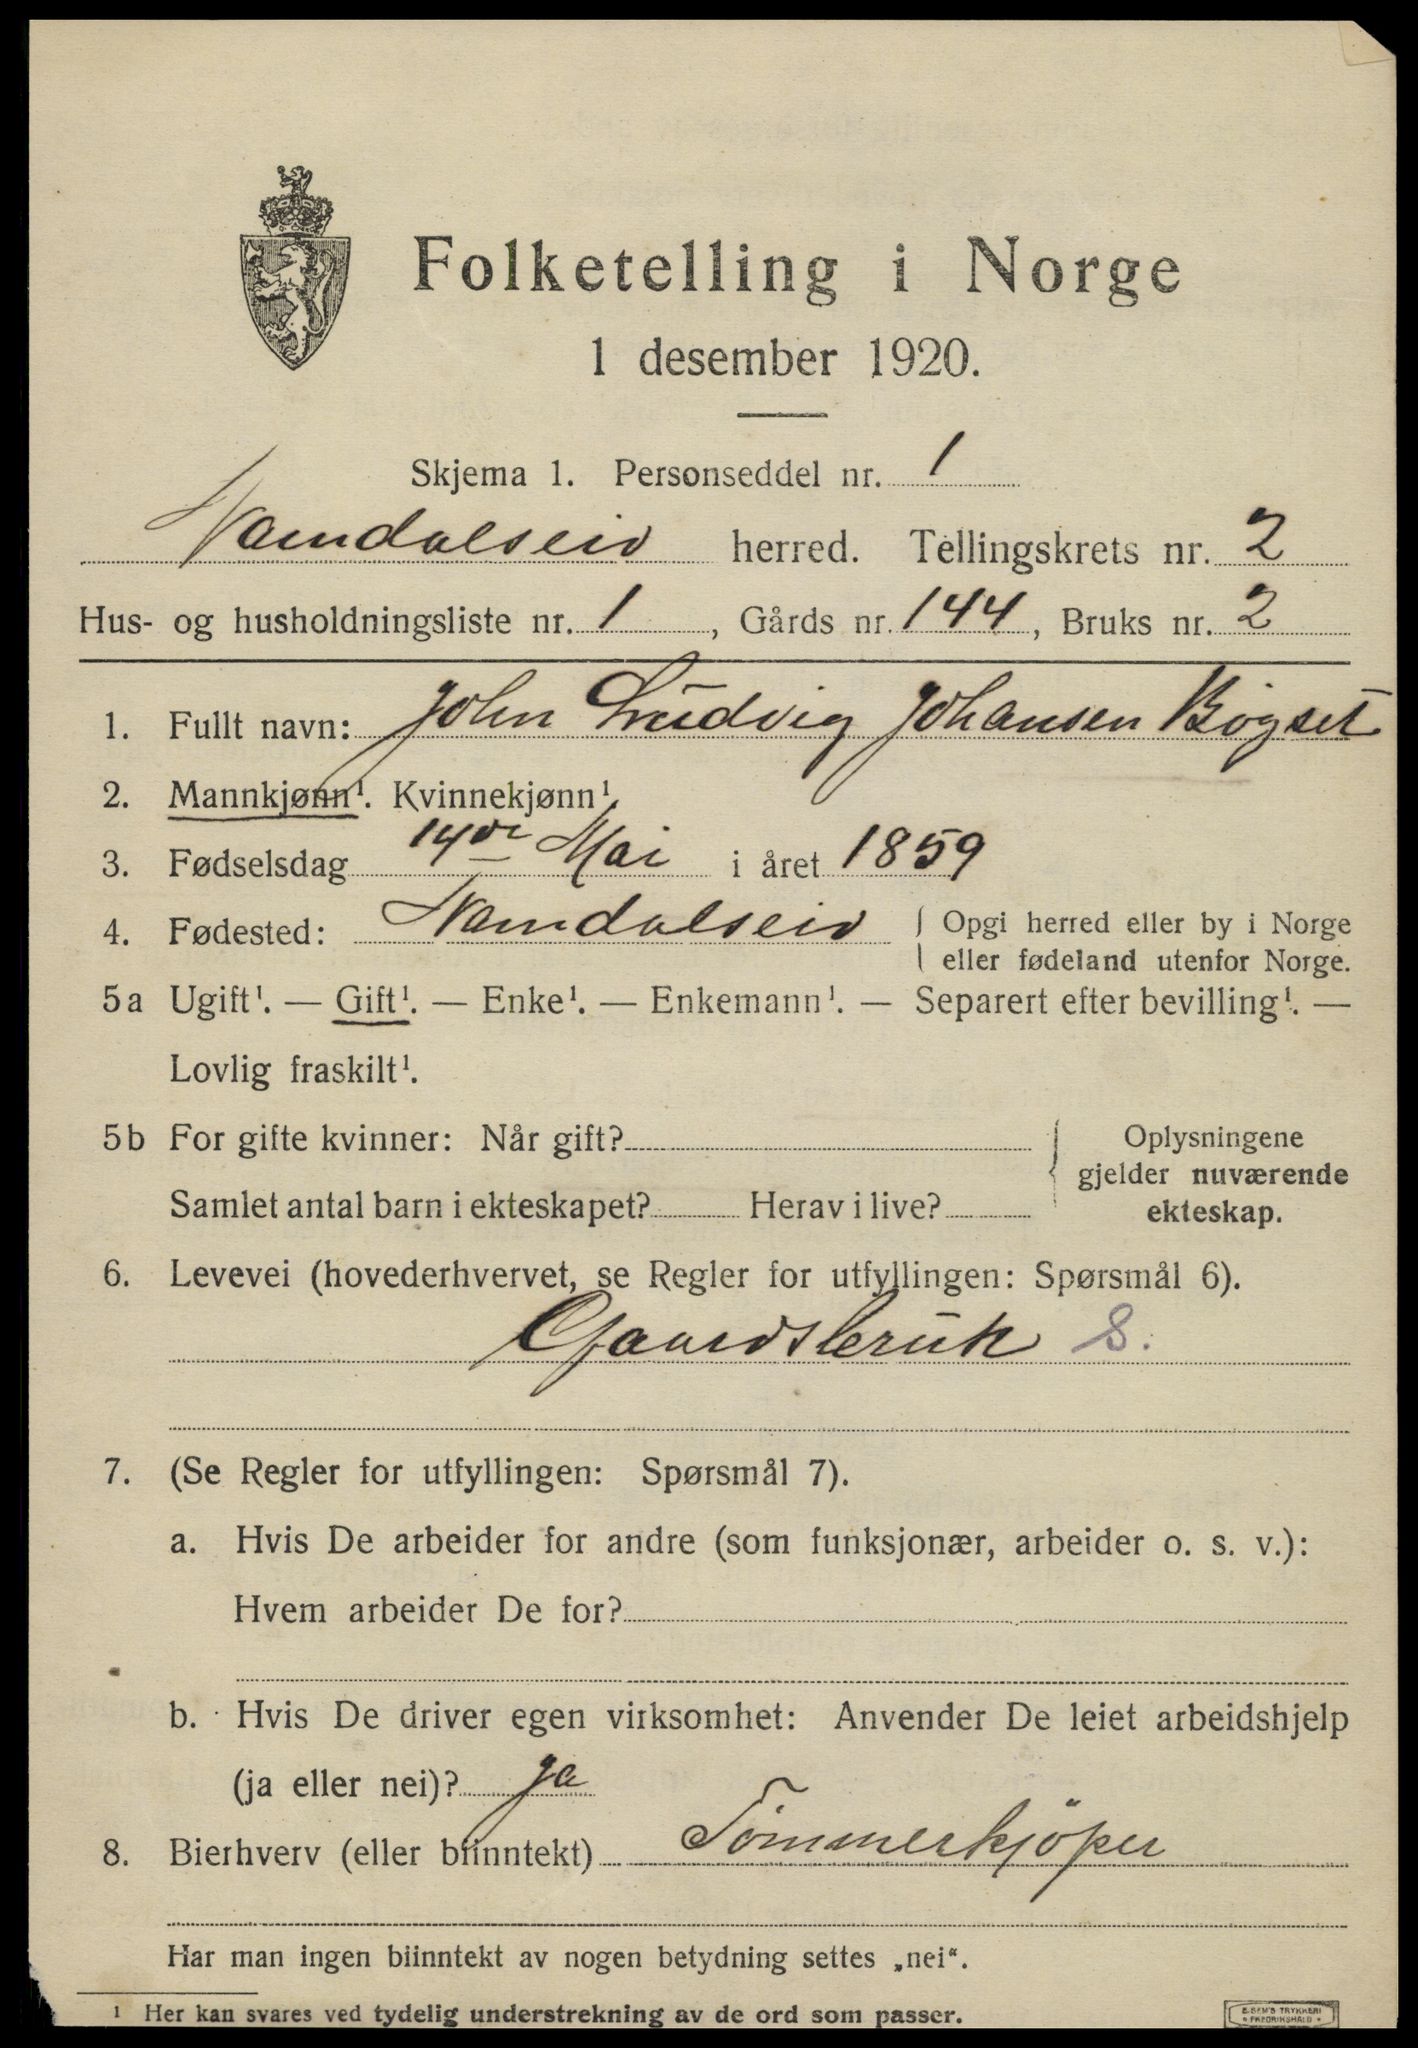 Folketelling i Norge
1 desember 1920.
Skjema 1. Personseddel nr. 1
Namdalseid herred. Tellingskrets nr. 2
Hus- og husholdningsliste nr. 1, Gårds nr. 144, Bruks nr. 2
1. Fullt navn: John Ludvig Johansen Bøgset
2. Mannkjønn¹. Kvinnekjønn¹.
3. Fødselsdag 14de Mai i året 1859
4. Fødested: Namdalseid { Opgi herred eller by i Norge
eller fødeland utenfor Norge.
5a Ugift¹. — Gift¹. — Enke¹. — Enkemann¹. — Separert efter bevilling¹. —
Lovlig fraskilt¹.
5b For gifte kvinner: Når gift?
Samlet antal barn i ekteskapet? Herav i live?
{ Oplysningene
gjelder nuværende
ekteskap.
6. Levevei (hovederhvervet, se Regler for utfyllingen: Spørsmål 6).
Gaardsbruk S.
7. (Se Regler for utfyllingen: Spørsmål 7).
a. Hvis De arbeider for andre (som funksjonær, arbeider o. s. v.):
Hvem arbeider De for?
b. Hvis De driver egen virksomhet: Anvender De leiet arbeidshjelp
(ja eller nei)? ja
8. Bierhverv (eller biinntekt) Tömmerkjöper
Har man ingen biinntekt av nogen betydning settes „nei“.
¹ Her kan svares ved tydelig understrekning av de ord som passer.
E. SEM'S TRYKKERI
FREDRIKSHALD